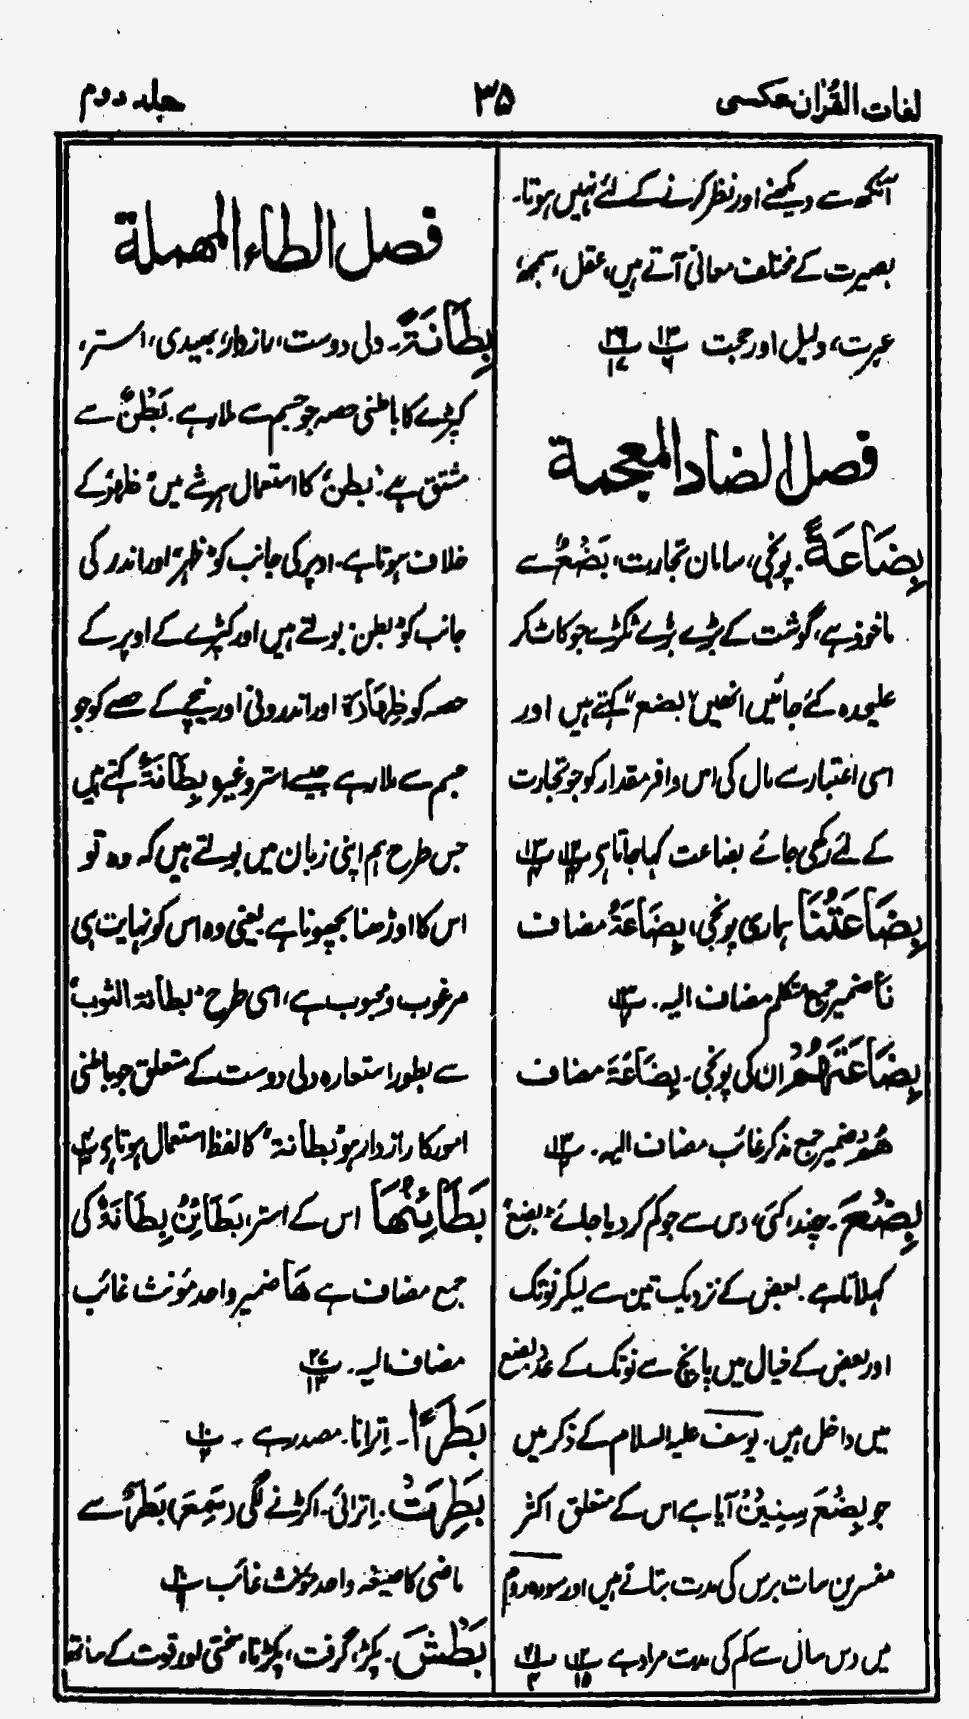 لغات القرآن عکسی
۳۵
جلد دوم
آنکھ سے دیکھنے اور نظر کرنے کے لئے نہیں ہوتا۔
بصیرت کے مختلف معانی آتے ہیں، عقل، سمجھ،
عبرت، دلیل اور حجت پ۱۳/۶ پ۲۹/۱۷
فصل الضاد المعجمة
بِضَاعَةً۔ پونجی، سامان تجارت، بَضْعٌ سے
ماخوذ ہے، گوشت کے بڑے بڑے ٹکڑے جو کاٹ کر
علیحدہ کئے جائیں انھیں "بضع" کہتے ہیں اور
اسی اعتبار سے مال کی اس وافر مقدار کو جو تجارت
کے لئے رکھی جائے بضاعت کہا جاتا ہے
بِضَاعَتُنَا ہماری پونجی، بِضَاعَةُ مضاف
نَا ضمیر جمع متکلم مضاف الیہ۔
بِضَاعَتَهُمْ ان کی پونجی۔ بِضَاعَةَ مضاف
هُمْ ضمیر جمع مذکر غائب مضاف الیہ۔
بِضْعَ۔ چند، کئی، دس سے جو کم کر دیا جائے "بضع"
کہلاتا ہے۔ بعض کے نزدیک تین سے لیکر نو تک
اور بعض کے خیال میں پانچ سے نو تک کے عدد بضع
میں داخل ہیں۔ یوسف علیہ السلام کے ذکر میں
جو بِضْعَ سِنِیْنَ آیا ہے اس کے متعلق اکثر
مفسرین سات برس کی مدت بتاتے ہیں اور سورہ روم
میں دس سال سے کم کی مدت مراد ہے
فصل الطاء المهملة
بِطَانَةً۔ دلی دوست، رازدار، بھیدی، استر،
کپڑے کا باطنی حصہ جو جسم سے ملا رہے۔ بَطْنٌ سے
مشتق ہے۔ "بطن" کا استعمال ہر شے میں "ظهر" کے
خلاف ہوتا ہے۔ اوپر کی جانب کو "ظهر" اور اندر کی
جانب کو "بطن" بولتے ہیں اور کپڑے کے اوپر کے
حصہ کو ظِهَارَة اور اندرونی اور نیچے کے حصے کو جو
جسم سے ملا رہے جیسے استر وغیرہ بِطَانَةٌ کہتے ہیں
جس طرح ہم اپنی زبان میں بولتے ہیں کہ وہ تو
اس کا اوڑھنا بچھونا ہے یعنی وہ اس کو نہایت ہی
مرغوب و محبوب ہے، اسی طرح "بطانة الثوب"
سے بطور استعارہ دلی دوست کے متعلق جو باطنی
امور کا رازدار ہو "بطانة" کا لفظ استعمال ہوتا ہے
بَطَائِنُهَا اس کے استر، بَطَائِنُ بِطَانَةٌ کی
جمع مضاف ہے هَا ضمیر واحد مؤنث غائب
مضاف الیہ۔ پ۲۷/۱۳
بَطَرًا۔ اِترانا۔ مصدر ہے۔
بَطِرَتْ۔ اِترائی۔ اکڑنے لگی (سَمِعَ) بَطَرٌ سے
ماضی کا صیغہ واحد مؤنث غائب
بَطْشَ۔ پکڑ، گرفت، پکڑنا، سختی اور قوت کے ساتھ